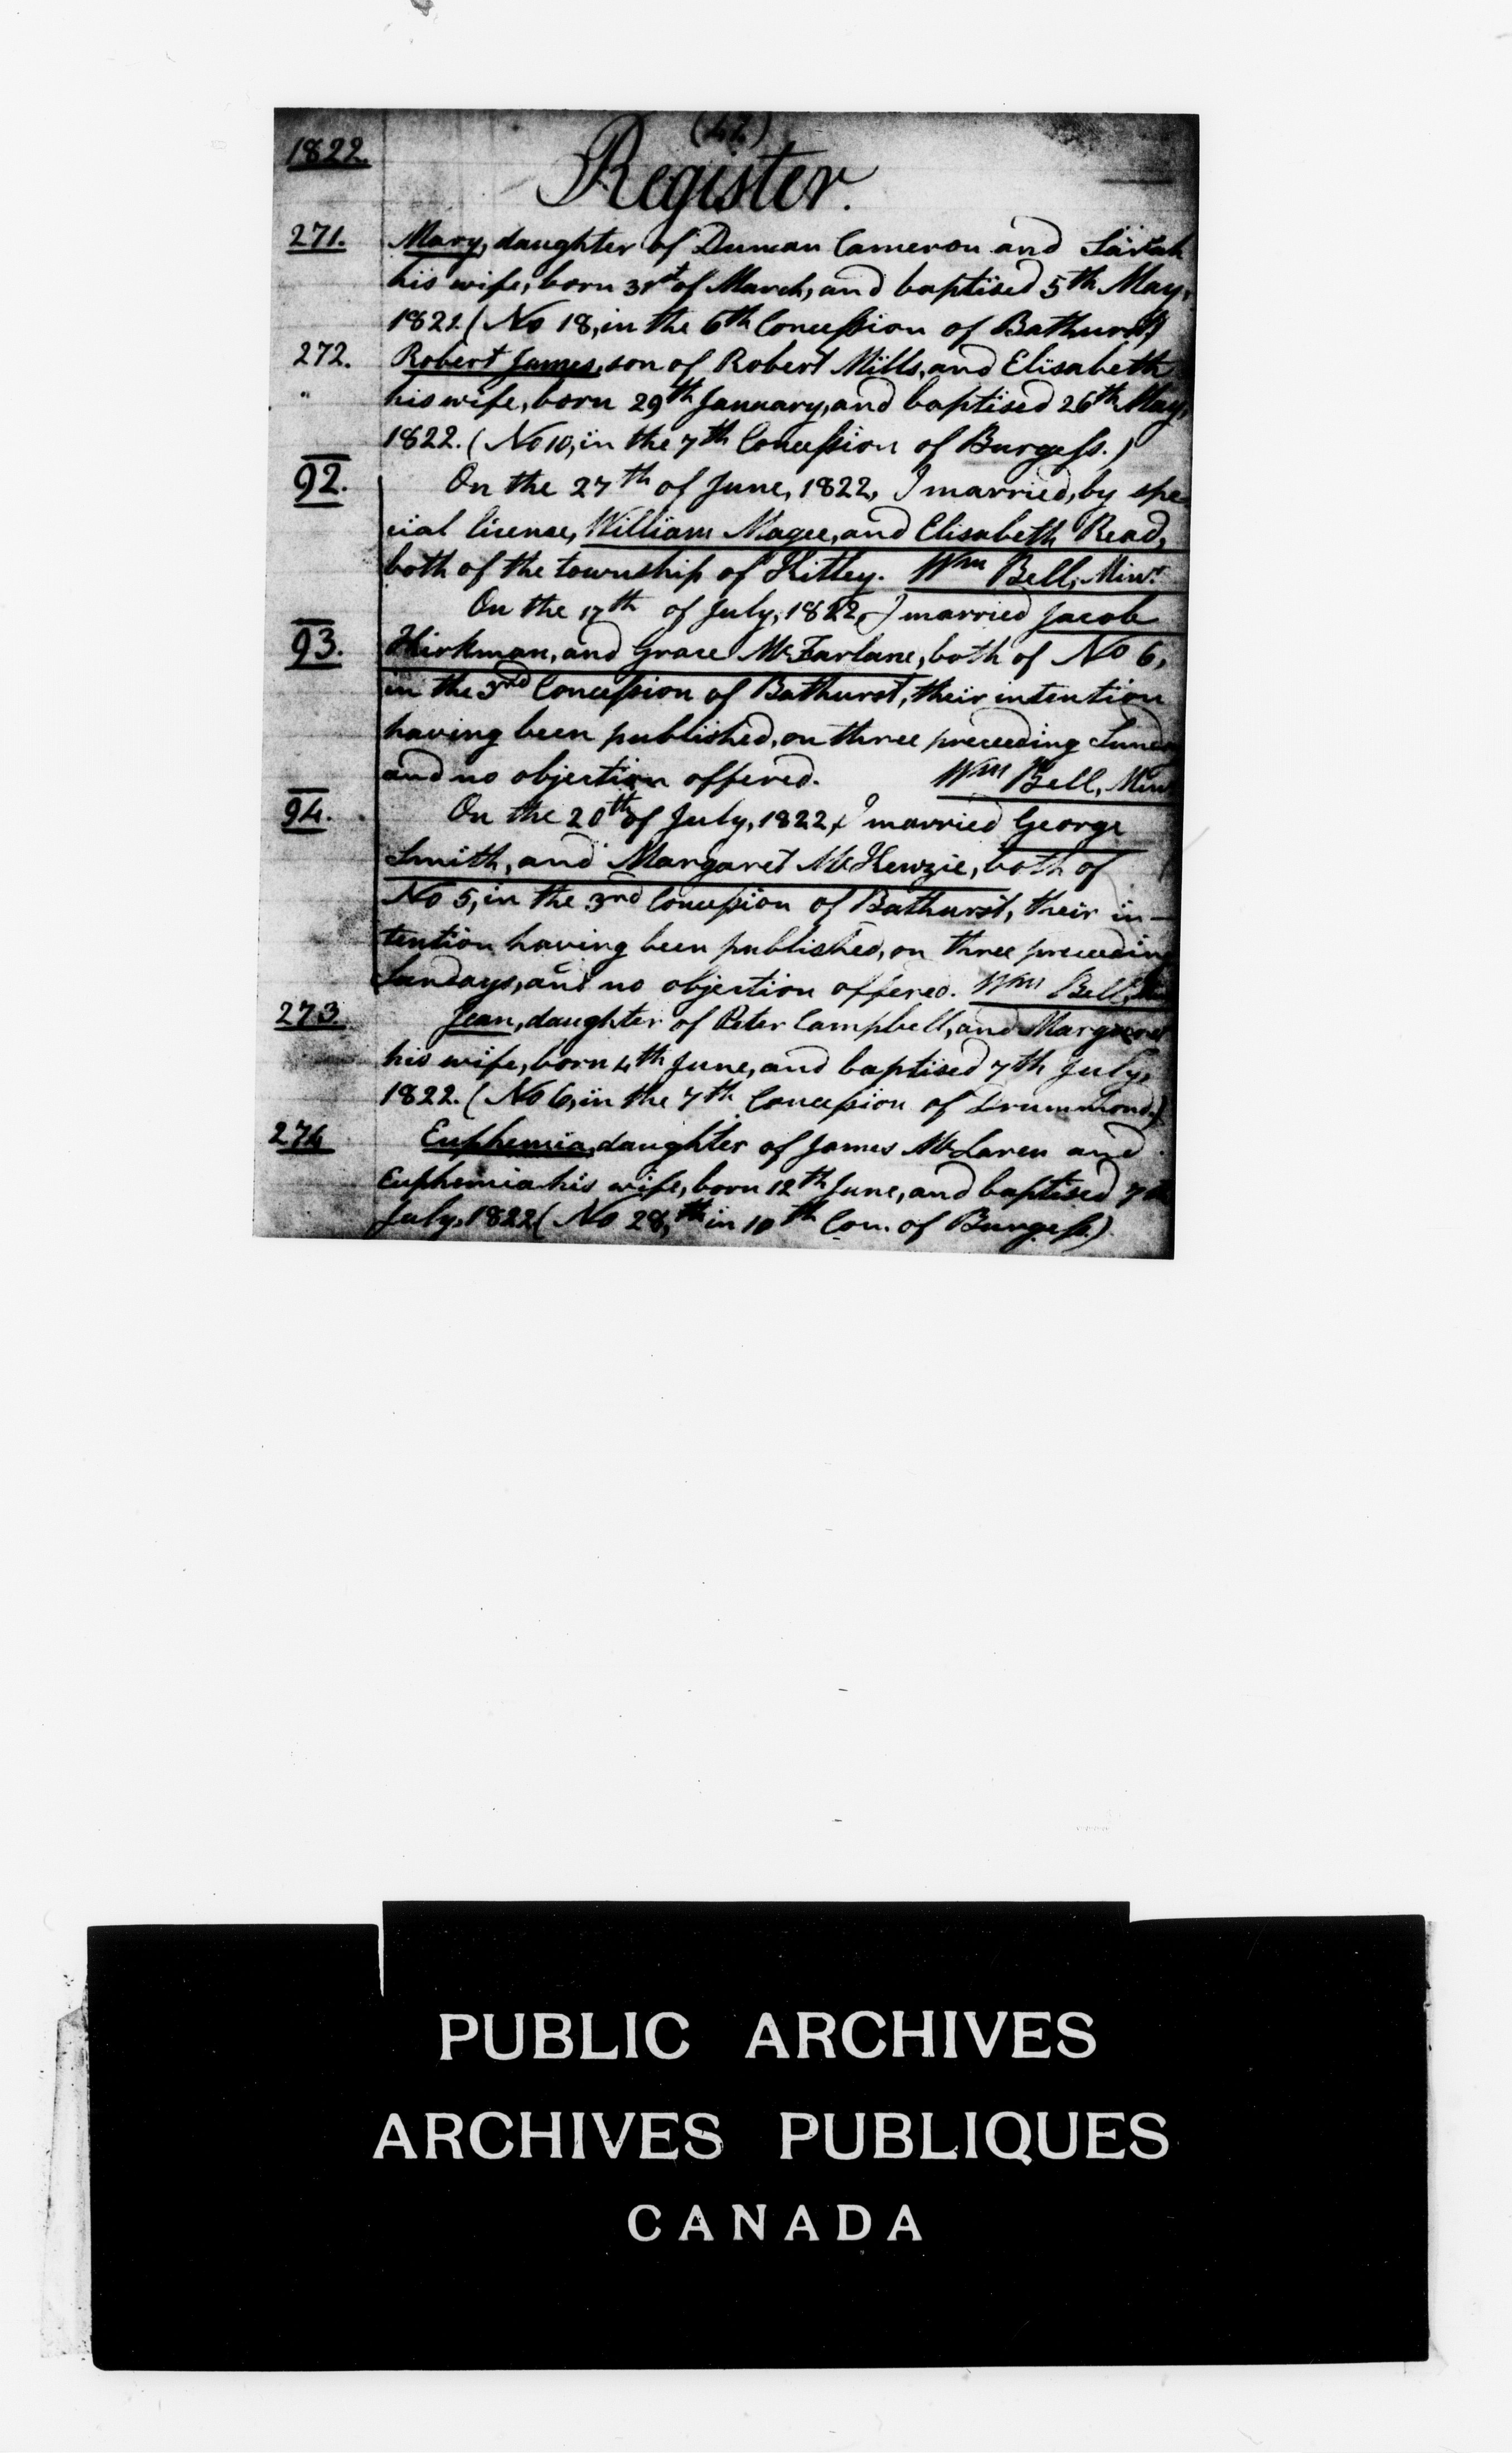 (42)
1822.
Register.
271. Mary, daughter of Duncan Cameron and Sarah
his wife, born 31st of March, and baptised 5th May,
1822 (No 18, in the 6th Concession of Bathurst)
272. Robert James, son of Robert Mills, and Elisabeth
" his wife, born 29th January, and baptised 26th May,
1822. (No 10, in the 7th Concession of Burgess.)
92. On the 27th of June, 1822, I married, by spe
cial license, William Magee, and Elisabeth Read,
both of the township of Kitley. Wm Bell, Minr.
On the 17th of July, 1822, I married Jacob
93. Kirkman, and Grace McFarlane, both of No 6,
in the 3rd Concession of Bathurst, their intention
having been published, on three preceeding Sunda
and no objection offered. Wm Bell, Min
94. On the 20th of July, 1822, I married George
Smith, and Margaret McKenzie, both of
No 5, in the 3rd Concession of Bathurst, their in-
tention having been published, on three preceedin
Sundays, and no objection offered. Wm Bell,
273. Jean, daughter of Peter Campbell, and Margaret
his wife, born 4th June, and baptised 7th July,
1822. (No 6, in the 7th Concession of Drummond.)
274 Euphemia, daughter of James McLaren and
Euphemia his wife, born 12th June, and baptised 7th
July, 1822 (No 28, th in 10th Con. of Burgess.)
PUBLIC ARCHIVES
ARCHIVES PUBLIQUES
CANADA